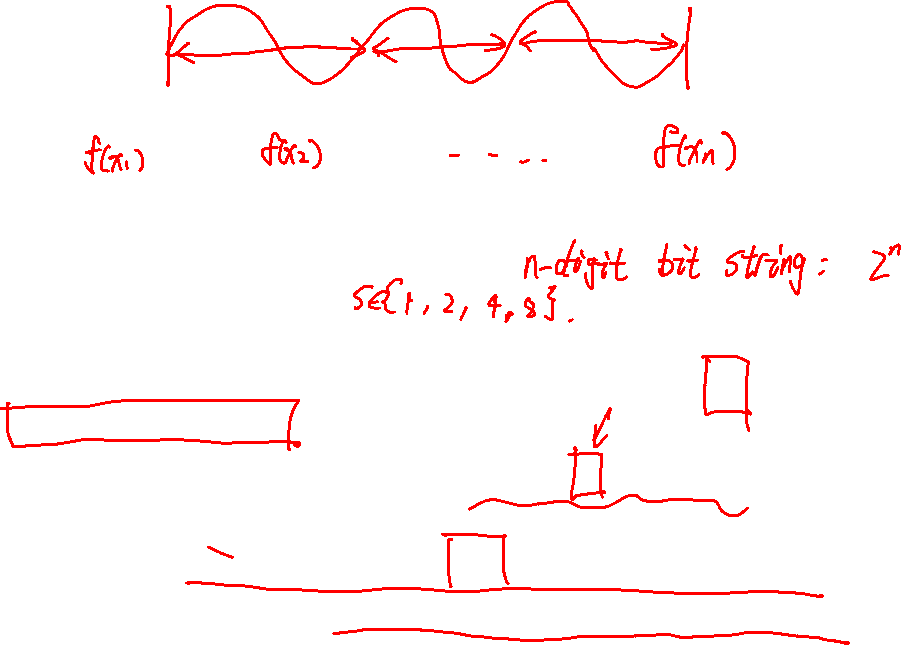 f(x₁) f(x₂) - - - .. f(xₙ)
n-digit bit string: 2ⁿ
S∈{1, 2, 4, 8}.